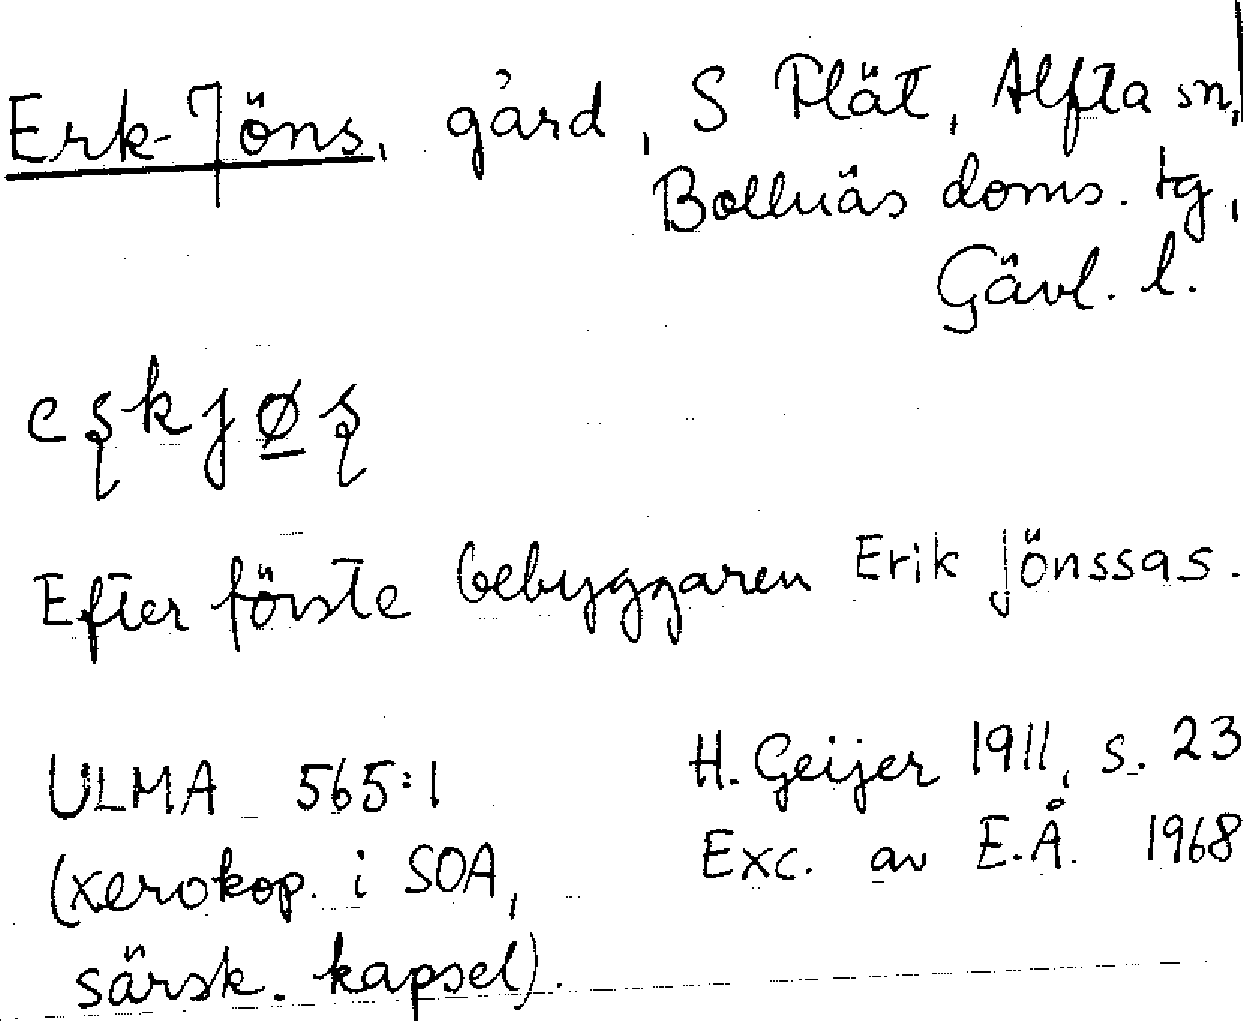 Erk-Jöns, gård, S Flät, Alfta sn,
Bollnäs doms. tg,
Gävl. l.
Efter förste bebyggaren Erik Jönssas.
ULMA 565:1
(xerokop. i SOA,
särsk. kapsel).
H. Geijer 1911, s. 23
Exc. av E.Å. 1968